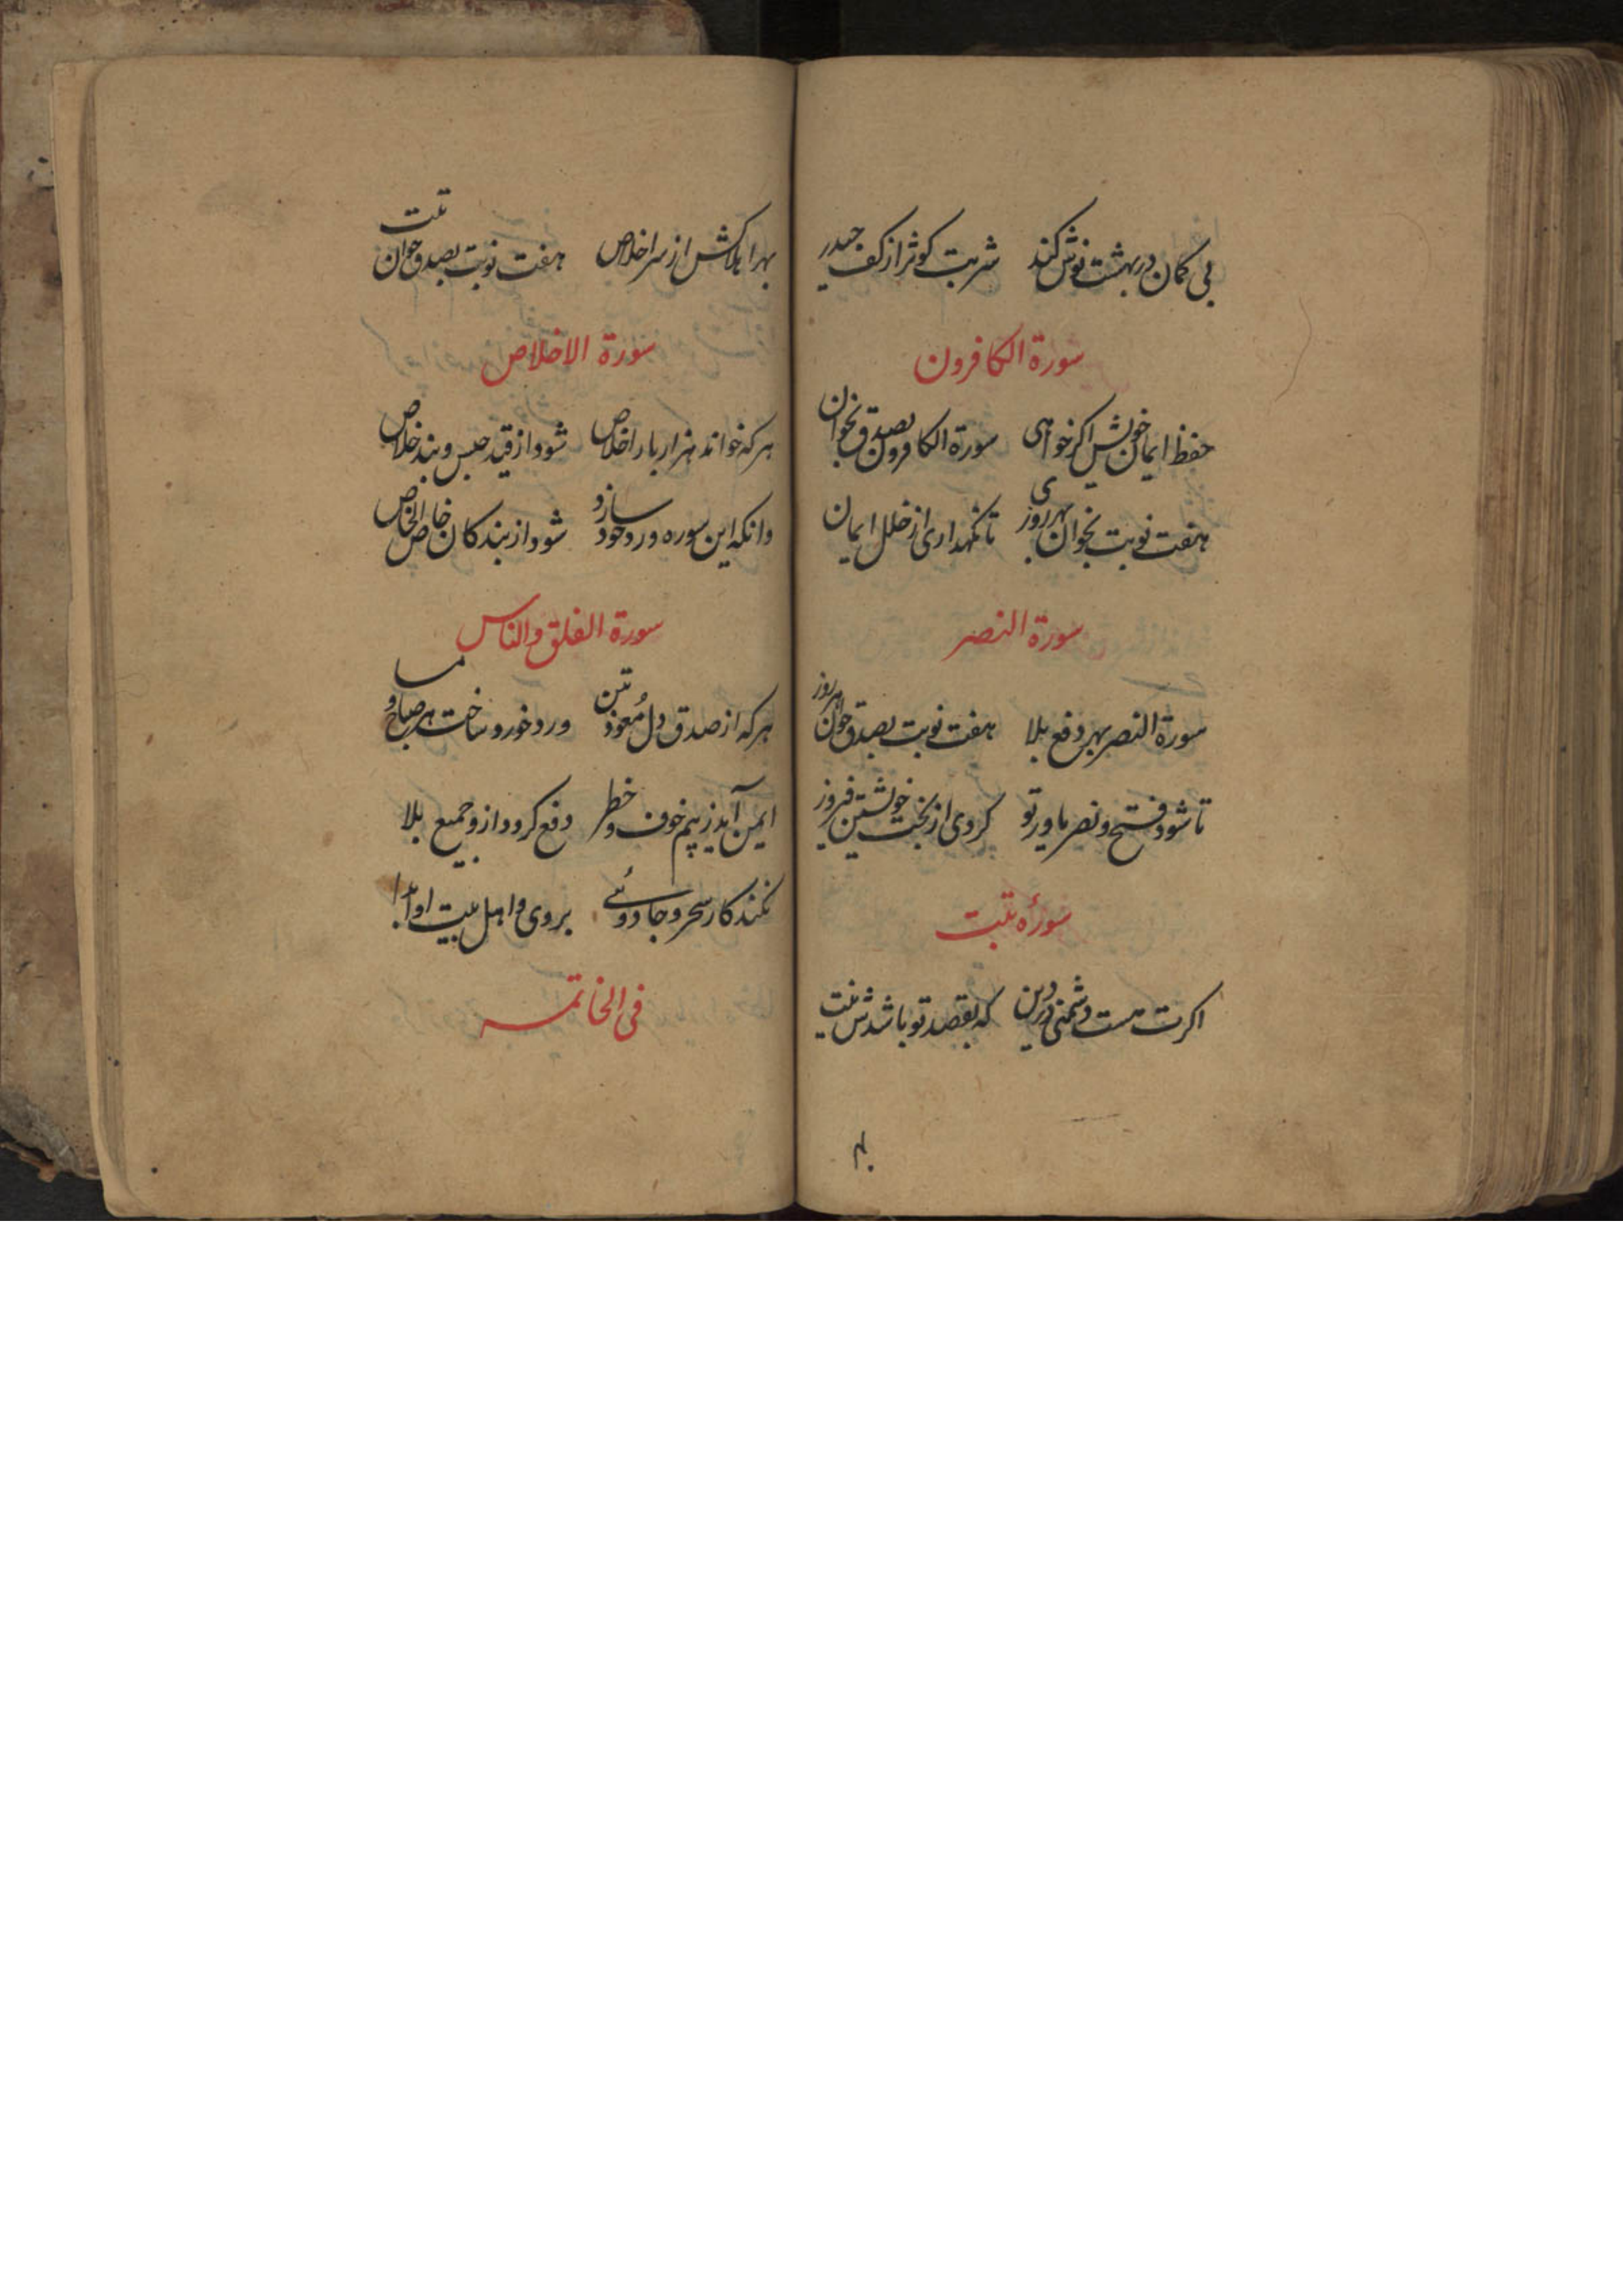 بی کمان در بهشت نوش کند شربت کوثر از کف حیدر
سورة الکافرون
حفظ ایمان خویش اکر خواهی سورة الکافرون بصدق بخوان
هفت نوبت بخوان بهر روزی تا نکهداری از خلل ایمان
سورة النصر
سورة النصر بهر دفع بلا هفت نوبت بصدق خوان هر روز
تا شود فتح و نصر یاور تو کردی از بخت خویشتن فیروز
سورهٔ تبت
اکرت هست دشمنی در دین که بقصد تو باشدش نیت
بهر
بهر اهلاکش از سر اخلاص هفت نوبت بصدق خوان تبت
سورة الاخلاص
هر که خواند هزار بار اخلاص شود از قید حبس و بند خلاص
وانکه این سوره ورد خود سازد شود از بندکان خاص الخاص
سورة الفلق والناس
هر که از صدق دل مُعوذتین ورد خود ساخت هر صباح و مسا
ایمن آید ز بیم خوف و خطر دفع کردد ازو جمیع بلا
نکند کار سحر و جادوئے بر وی و اهل بیت او ابدا
فی الخاتمه